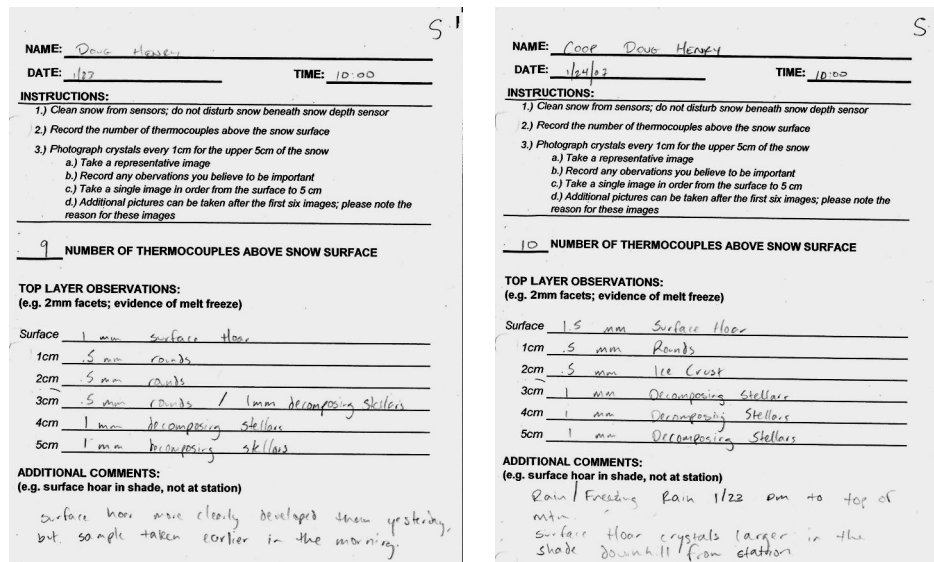 S
NAME: Doug Henry
DATE: 1/23 TIME: 10:00
INSTRUCTIONS:
1.) Clean snow from sensors; do not disturb snow beneath snow depth sensor
2.) Record the number of thermocouples above the snow surface
3.) Photograph crystals every 1cm for the upper 5cm of the snow
a.) Take a representative image
b.) Record any obervations you believe to be important
c.) Take a single image in order from the surface to 5 cm
d.) Additional pictures can be taken after the first six images; please note the
reason for these images
9 NUMBER OF THERMOCOUPLES ABOVE SNOW SURFACE
TOP LAYER OBSERVATIONS:
(e.g. 2mm facets; evidence of melt freeze)
Surface 1 mm surface hoar
1cm .5 mm rounds
2cm .5 mm rounds
3cm .5 mm rounds / 1mm decomposing stellars
4cm 1 mm decomposing stellars
5cm 1 mm decomposing stellars
ADDITIONAL COMMENTS:
(e.g. surface hoar in shade, not at station)
surface hoar more clearly developed then yesterday,
but sample taken earlier in the morning.
S
NAME: Coop Doug Henry
DATE: 1/24/07 TIME: 10:00
INSTRUCTIONS:
1.) Clean snow from sensors; do not disturb snow beneath snow depth sensor
2.) Record the number of thermocouples above the snow surface
3.) Photograph crystals every 1cm for the upper 5cm of the snow
a.) Take a representative image
b.) Record any obervations you believe to be important
c.) Take a single image in order from the surface to 5 cm
d.) Additional pictures can be taken after the first six images; please note the
reason for these images
10 NUMBER OF THERMOCOUPLES ABOVE SNOW SURFACE
TOP LAYER OBSERVATIONS:
(e.g. 2mm facets; evidence of melt freeze)
Surface 1.5 mm Surface Hoar
1cm .5 mm Rounds
2cm .5 mm Ice Crust
3cm 1 mm Decomposing Stellars
4cm 1 mm Decomposing Stellars
5cm 1 mm Decomposing Stellars
ADDITIONAL COMMENTS:
(e.g. surface hoar in shade, not at station)
Rain/Freezing Rain 1/23 pm to top of
mtn.
surface Hoar crystals larger in the
shade downhill from station